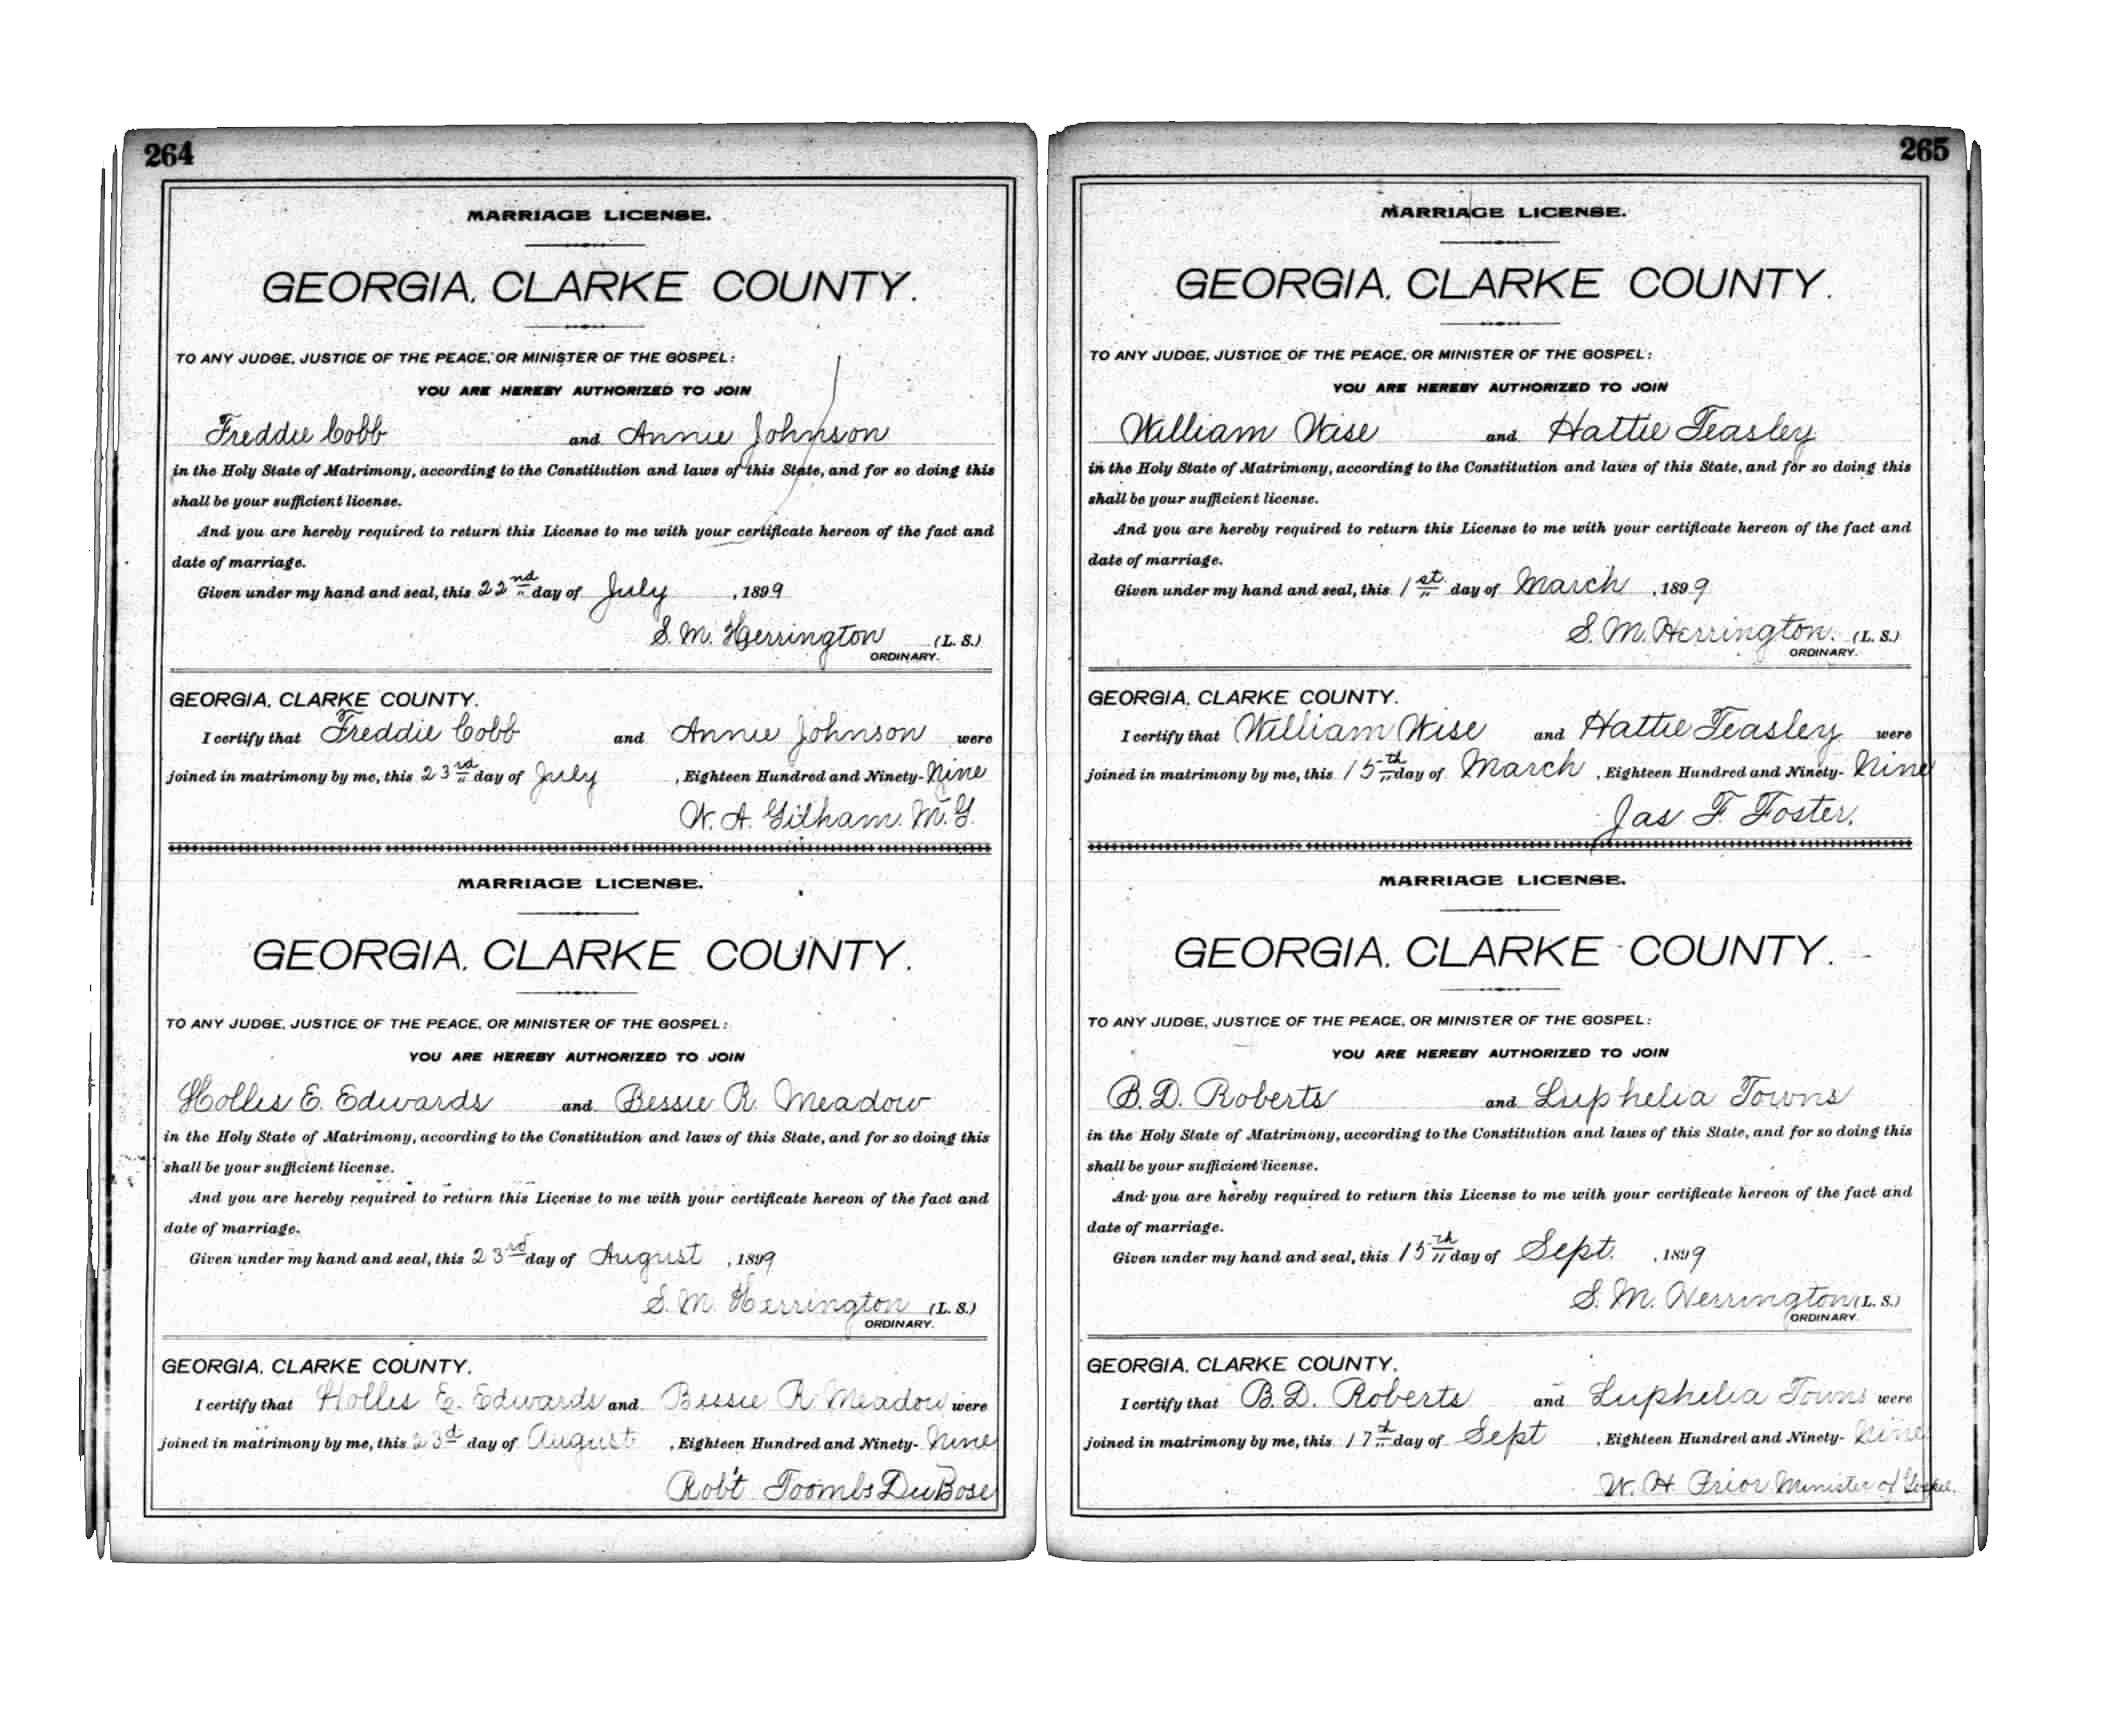 264
MARRIAGE LICENSE.
GEORGIA, CLARKE COUNTY.
TO ANY JUDGE, JUSTICE OF THE PEACE, OR MINISTER OF THE GOSPEL:
YOU ARE HEREBY AUTHORIZED TO JOIN
Freddie Cobb and Annie Johnson
in the Holy State of Matrimony, according to the Constitution and laws of this State, and for so doing this
shall be your sufficient license.
And you are hereby required to return this License to me with your certificate hereon of the fact and
date of marriage.
Given under my hand and seal, this 22nd day of July, 1899
S. M. Herrington (L. S.)
ORDINARY.
GEORGIA, CLARKE COUNTY.
I certify that Freddie Cobb and Annie Johnson were
joined in matrimony by me, this 23rd day of July, Eighteen Hundred and Ninety-Nine
W. A. Gilham. M. G.
MARRIAGE LICENSE.
GEORGIA, CLARKE COUNTY.
TO ANY JUDGE, JUSTICE OF THE PEACE, OR MINISTER OF THE GOSPEL:
YOU ARE HEREBY AUTHORIZED TO JOIN
Holles E. Edwards and Bessie R. Meadow
in the Holy State of Matrimony, according to the Constitution and laws of this State, and for so doing this
shall be your sufficient license.
And you are hereby required to return this License to me with your certificate hereon of the fact and
date of marriage.
Given under my hand and seal, this 23rd day of August, 1899
S. M. Herrington (L. S.)
ORDINARY.
GEORGIA, CLARKE COUNTY.
I certify that Holles E. Edwards and Bessie R. Meadow were
joined in matrimony by me, this 23d day of August, Eighteen Hundred and Ninety-Nine
Rob't Toombs DuBose
265
MARRIAGE LICENSE.
GEORGIA, CLARKE COUNTY.
TO ANY JUDGE, JUSTICE OF THE PEACE, OR MINISTER OF THE GOSPEL:
YOU ARE HEREBY AUTHORIZED TO JOIN
William Wise and Hattie Teasley
in the Holy State of Matrimony, according to the Constitution and laws of this State, and for so doing this
shall be your sufficient license.
And you are hereby required to return this License to me with your certificate hereon of the fact and
date of marriage.
Given under my hand and seal, this 1st day of March, 1899
S. M. Herrington. (L. S.)
ORDINARY.
GEORGIA, CLARKE COUNTY.
I certify that William Wise and Hattie Teasley were
joined in matrimony by me, this 15th day of March, Eighteen Hundred and Ninety-Nine
Jas F. Foster.
MARRIAGE LICENSE.
GEORGIA, CLARKE COUNTY.
TO ANY JUDGE, JUSTICE OF THE PEACE, OR MINISTER OF THE GOSPEL:
YOU ARE HEREBY AUTHORIZED TO JOIN
B. D. Roberts and Luphelia Towns
in the Holy State of Matrimony, according to the Constitution and laws of this State, and for so doing this
shall be your sufficient license.
And you are hereby required to return this License to me with your certificate hereon of the fact and
date of marriage.
Given under my hand and seal, this 15th day of Sept., 1899
S. M. Herrington (L. S.)
ORDINARY.
GEORGIA, CLARKE COUNTY.
I certify that B. D. Roberts and Luphelia Towns were
joined in matrimony by me, this 17th day of Sept, Eighteen Hundred and Ninety-Nine
W. H. Prior Minister of Gospel.